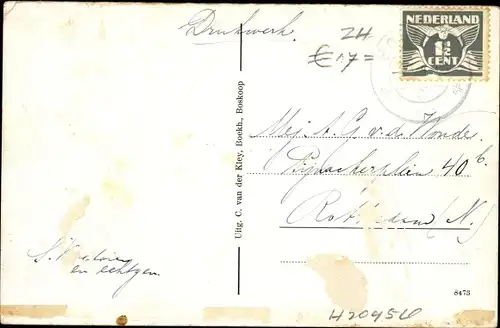 Drukwerk.
ZH
€ 17=
NEDERLAND
1½
CENT
Mej. A. G. v. d. Vonde.
Pijnackerplein 40 b.
Rotterdam (N.)
Uitg. C. van der Kley, Boekh., Boskoop
en echtgen.
8473